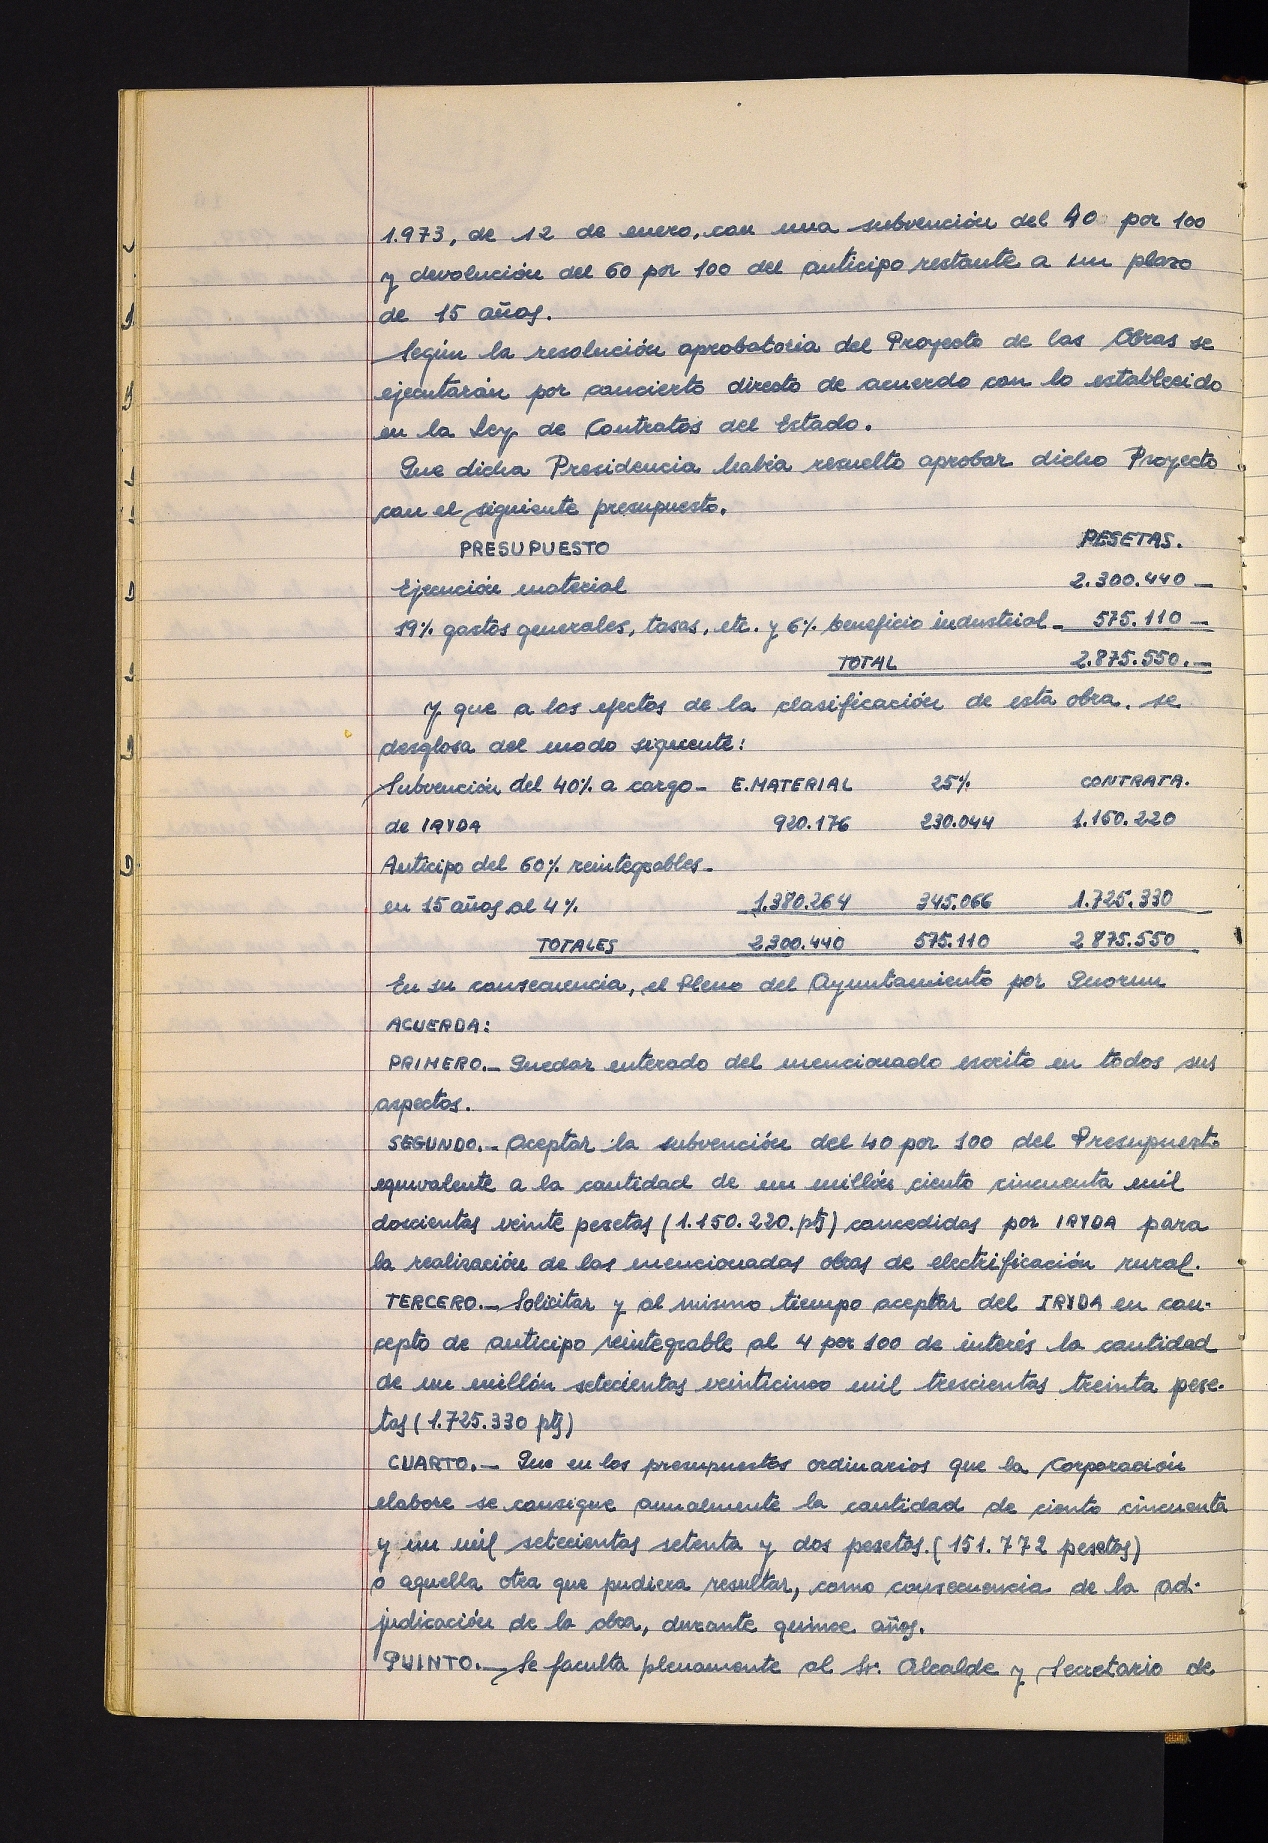 1.973, de 12 de enero, con una subvención del 40 por 100
y devolución del 60 por 100 del anticipo restante a un plazo
de 15 años.
Según la resolución aprobatoria del Proyecto de las Obras se
ejecutarán por concierto directo de acuerdo con lo establecido
en la Ley de Contratos del Estado.
Que dicha Presidencia había resuelto aprobar dicho Proyecto
con el siguiente presupuesto.
PRESUPUESTO PESETAS.
Ejecución material 2.300.440 —
19% gastos generales, tasas, etc. y 6% beneficio industrial - 575.110 —
TOTAL 2.875.550.—
Y que a los efectos de la clasificación de esta obra, se
desglosa del modo siguiente:
Subvención del 40% a cargo - E.MATERIAL 25% CONTRATA.
de IRYDA 920.176 230.044 1.150.220
Anticipo del 60% reintegrables -
en 15 años al 4% 1.380.264 345.066 1.725.330
TOTALES 2.300.440 575.110 2 875.550
En su consecuencia, el Pleno del Ayuntamiento por Quorum
ACUERDA:
PRIMERO.- Quedar enterado del mencionado escrito en todos sus
aspectos.
SEGUNDO.- Aceptar la subvención del 40 por 100 del Presupuesto
equivalente a la cantidad de un millón ciento cincuenta mil
doscientas veinte pesetas (1.150.220.pts) concedidas por IRYDA para
la realización de las mencionadas obras de electrificación rural.
TERCERO.- Solicitar y al mismo tiempo aceptar del IRYDA en con-
cepto de anticipo reintegrable al 4 por 100 de interés la cantidad
de un millón setecientas veinticinco mil trescientas treinta pese-
tas (1.725.330 pts)
CUARTO.- Que en los presupuestos ordinarios que la Corporación
elabore se consigne anualmente la cantidad de ciento cincuenta
y un mil setecientas setenta y dos pesetas. (151.772 pesetas)
o aquella otra que pudiera resultar, como consecuencia de la ad-
judicación de la obra, durante quince años.
QUINTO.- Se faculta plenamente al Sr. Alcalde y Secretario de